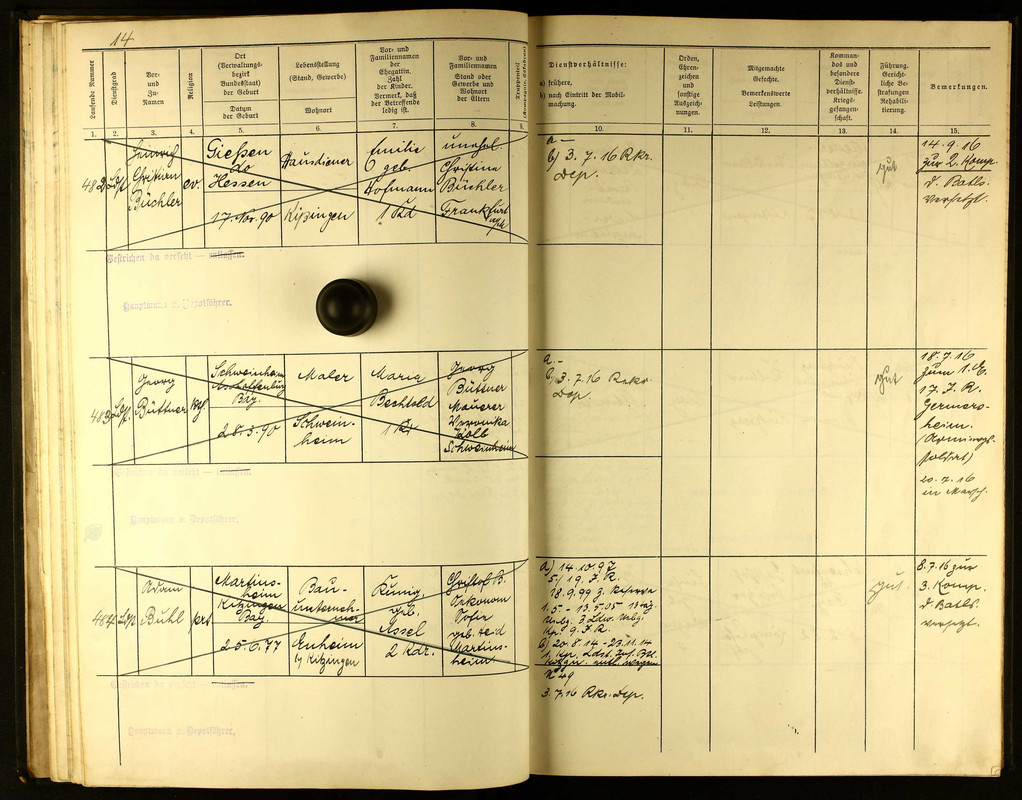 14
Laufende Nummer
Dienstgrad
Vor-
und
Zu-
Namen
Religion
Ort
(Verwaltungs-
bezirk
Bundesstaat)
der Geburt
Datum
der Geburt
Lebensstellung
(Stand, Gewerbe)
Wohnort
Vor- und
Familiennamen
der
Ehegattin.
Zahl
der Kinder.
Vermerk, daß
der Betreffende
ledig ist.
Vor- und
Familiennamen
Stand oder
Gewerbe und
Wohnort
der Eltern
Truppenteil
Dienstverhältnisse:
a) frühere,
b) nach Eintritt der Mobil-
machung.
Orden,
Ehren-
zeichen
und
sonstige
Auszeich-
nungen.
Mitgemachte
Gefechte.
Bemerkenswerte
Leistungen.
Komman-
dos und
besondere
Dienst-
verhältnisse.
Kriegs-
gefangen-
schaft.
Führung.
Gericht-
liche Be-
strafungen
Rehabili-
tierung.
Bemerkungen.
1. 2. 3. 4. 5. 6. 7. 8. 9. 10. 11. 12. 13. 14. 15.
482
Heinrich
Christian
Büchler
ev.
Gießen
do
Hessen
17. Nov. 90
Hausdiener
Kissingen
Emilie
geb.
Hofmann
1 Kd
unehel.
Christina
Büchler
Frankfurt
a–
b) 3. 7. 16 Rkr.
Dep.
gut
14. 9. 16
zur 2. Komp.
d. Batls.
versetzt.
Gestrichen da versetzt — entlassen.
Hauptmann u. Depotführer.
483
Georg
Büttner
Schweinheim
Aschaffenburg
Bay.
28.3.90
Maler
Schwein-
heim
Maria
Bechtold
1 Kd
Georg
Büttner
Maurer
Veronika
Kolb
Schweinheim
a.–
b) 3. 7. 16 Rekr.
Dep.
gut
18. 7. 16
zum 1. E.
17. J. R.
Germers-
heim.
20. 7. 16
in Marsch.
Gestrichen da versetzt — entlassen.
Hauptmann u. Depotführer.
484
Adam
Buhl
prt
Martins-
heim
Kitzingen
Bay.
25.6.77
Bau-
unterneh-
mer
Enheim
b/ Kitzingen
geb.
Assel
2 Kdr.
Christof B.
Ökonom
geb.
Martins-
heim
a) 14.10.97
5/19. J. R.
18.9.99 z. Reserve
1.5 – 13.5.05
Kp. 9. J. R.
b) 20.8.14 – 23.11.14
3. 7. 16 Rkr. Dep.
gut.
8. 7. 16 zur
3. Komp.
d Batls.
versetzt.
Gestrichen da versetzt — entlassen.
Hauptmann u. Depotführer.